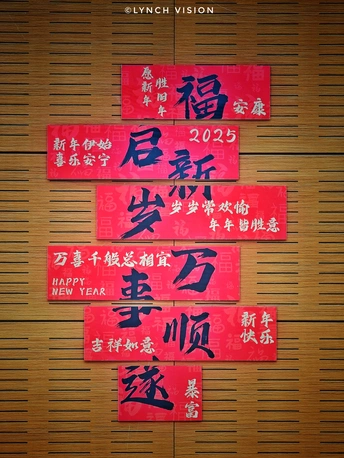 ©LYNCH VISION
愿新年
胜旧年
福
安康
新年伊始
喜乐安宁
启
2025
新
岁
岁岁常欢愉
年年皆胜意
万喜千般总相宜
HAPPY
NEW YEAR
万
事
吉祥如意
顺
新年
快乐
遂
暴富